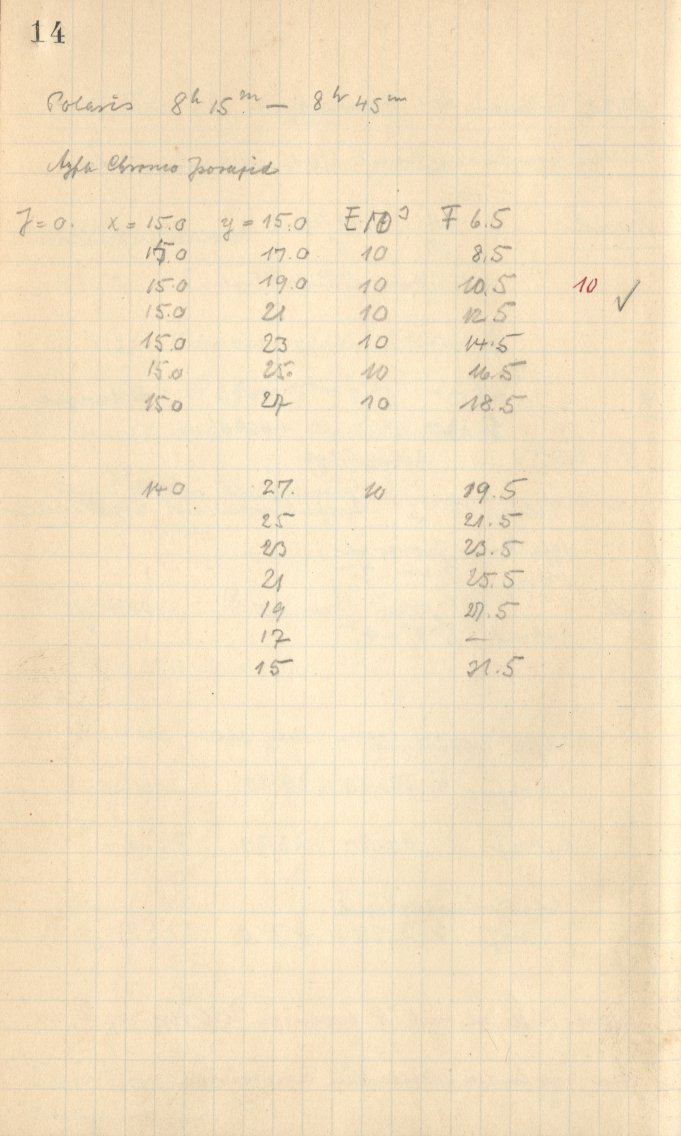 14
Polaris 8h 15m — 8h 45m
Agfa Chromo Isorapid
J = 0. x = 15.0 y = 15.0 E 10 F 6.5
15.0 17.0 10 8.5
15.0 19.0 10 10.5 10 ✓
15.0 21 10 12.5
15.0 23 10 14.5
15.0 25. 10 16.5
150 27 10 18.5
14.0 27. 10 19.5
25 21.5
23 23.5
21 25.5
19 27.5
17 —
15 31.5